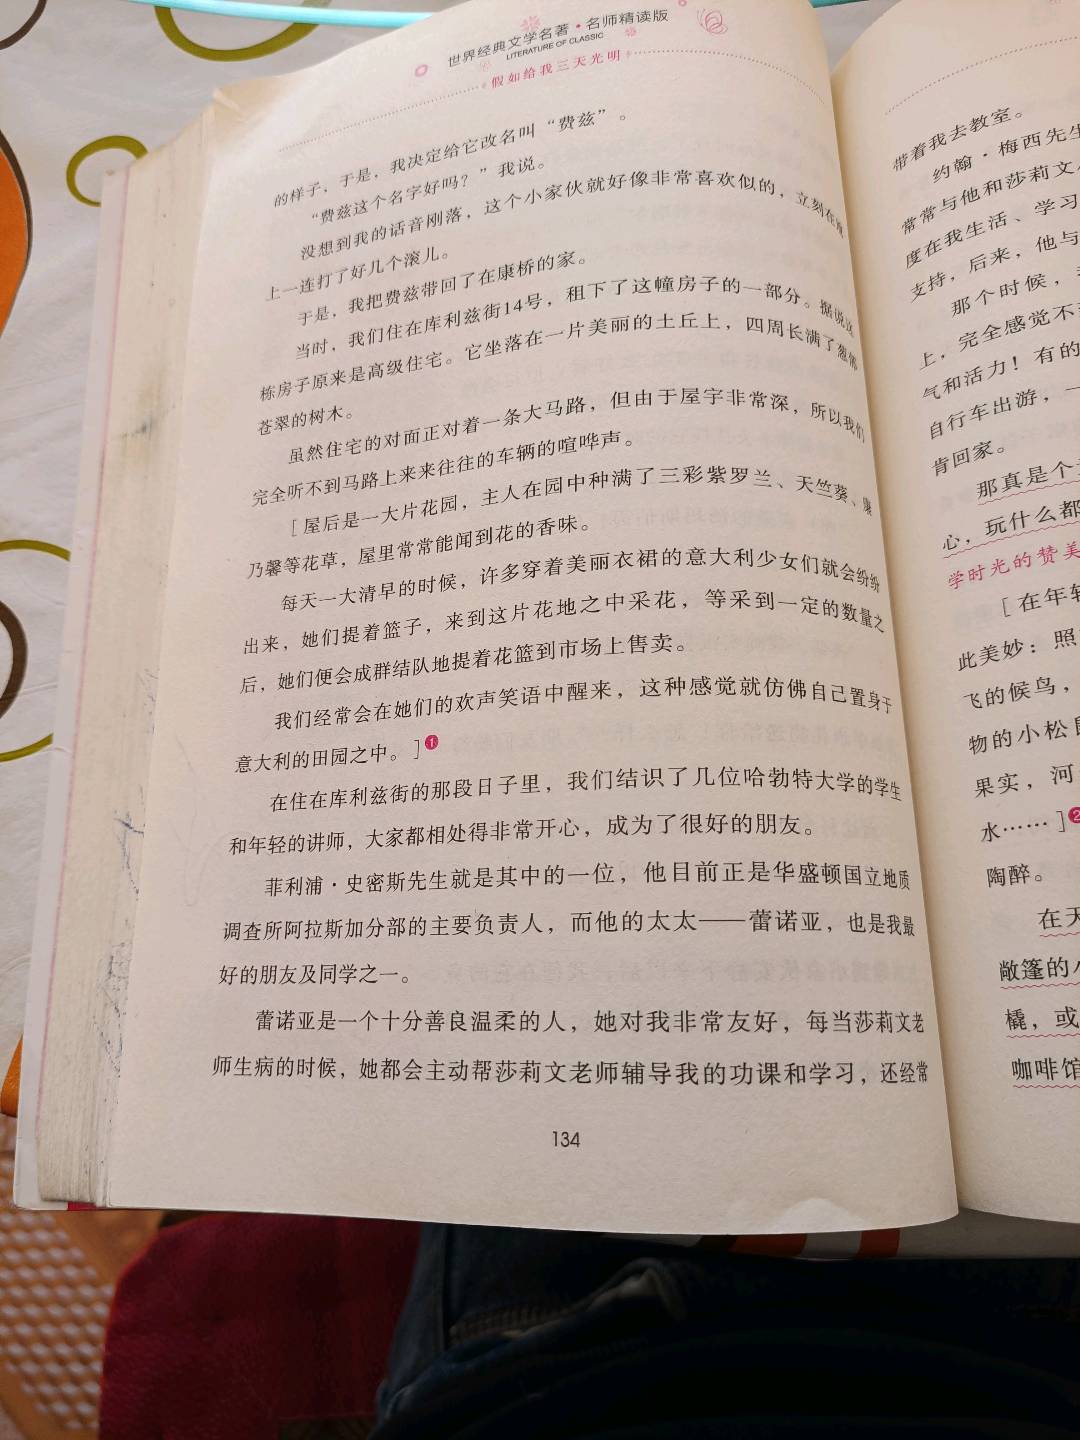 世界经典文学名著·名师精读版
LITERATURE OF CLASSIC
假如给我三天光明
的样子，于是，我决定给它改名叫“费兹”。
“费兹这个名字好吗？”我说。
没想到我的话音刚落，这个小家伙就好像非常喜欢似的，立刻在
上一连打了好几个滚儿。
于是，我把费兹带回了在康桥的家。
当时，我们住在库利兹街14号，租下了这幢房子的一部分。据说这
栋房子原来是高级住宅。它坐落在一片美丽的土丘上，四周长满了葱郁
苍翠的树木。
虽然住宅的对面正对着一条大马路，但由于屋宇非常深，所以我们
完全听不到马路上来来往往的车辆的喧哗声。
［屋后是一大片花园，主人在园中种满了三彩紫罗兰、天竺葵、康
乃馨等花草，屋里常常能闻到花的香味。
每天一大清早的时候，许多穿着美丽衣裙的意大利少女们就会纷纷
出来，她们提着篮子，来到这片花地之中采花，等采到一定的数量之
后，她们便会成群结队地提着花篮到市场上售卖。
我们经常会在她们的欢声笑语中醒来，这种感觉就仿佛自己置身于
意大利的田园之中。］❶
在住在库利兹街的那段日子里，我们结识了几位哈勃特大学的学生
和年轻的讲师，大家都相处得非常开心，成为了很好的朋友。
菲利浦·史密斯先生就是其中的一位，他目前正是华盛顿国立地质
调查所阿拉斯加分部的主要负责人，而他的太太——蕾诺亚，也是我最
好的朋友及同学之一。
蕾诺亚是一个十分善良温柔的人，她对我非常友好，每当莎莉文老
师生病的时候，她都会主动帮莎莉文老师辅导我的功课和学习，还经常
134
带着我去教室。
约翰·梅西先生
常常与他和莎莉文
度在我生活、学习
支持，后来，他与
那个时候，
上，完全感觉不
气和活力！有的
自行车出游，一
肯回家。
那真是个
心，玩什么都
学时光的赞美
［在年轻
此美妙：照
飞的候鸟，
物的小松鼠
果实，河
水……］❷
陶醉。
在天
敞篷的小
橇，或
咖啡馆